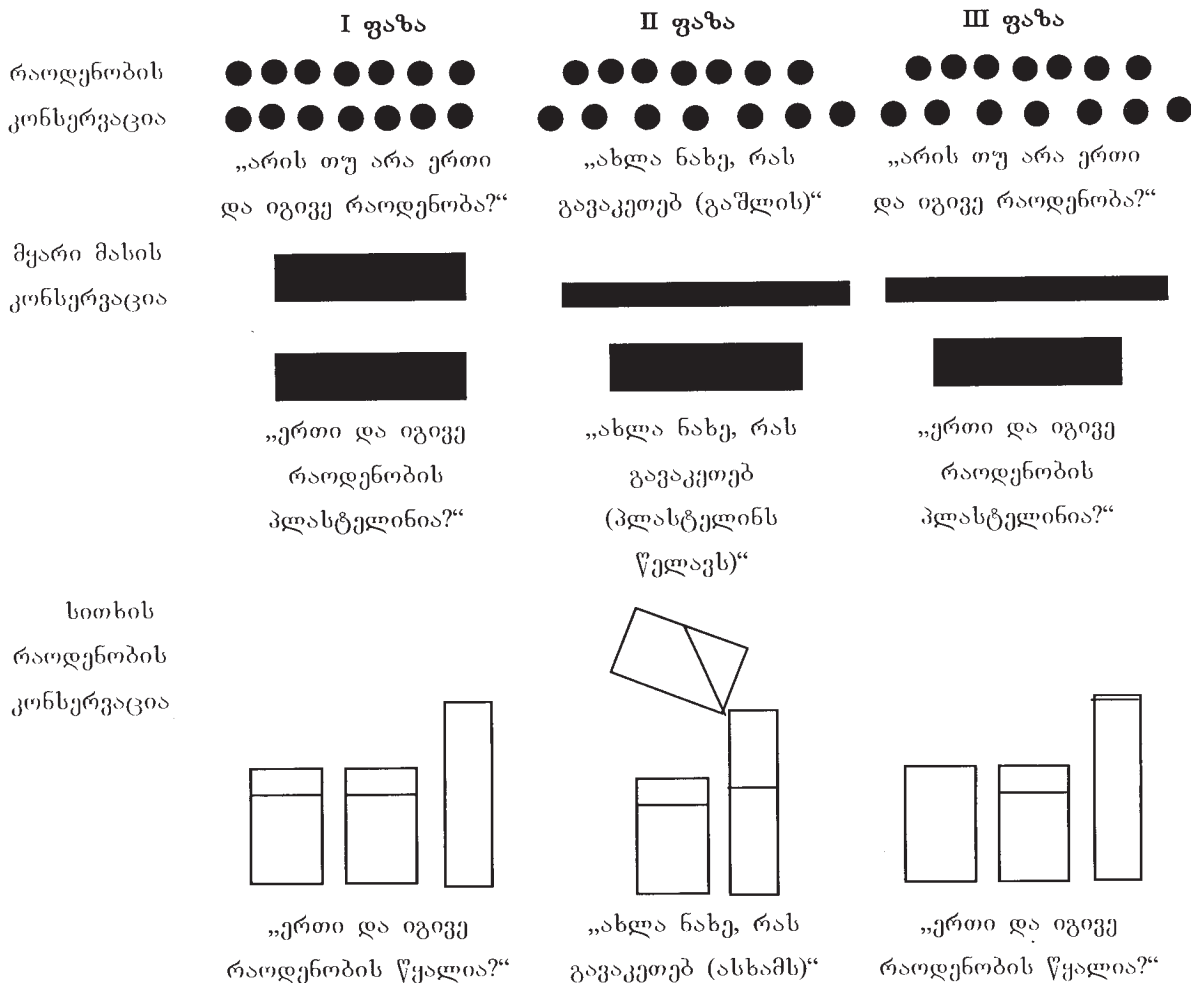 I ფაზა
II ფაზა
III ფაზა
რაოდენობის
კონსერვაცია
„არის თუ არა ერთი
და იგივე რაოდენობა?“
„ახლა ნახე, რას
გავაკეთებ (გაშლის)“
„არის თუ არა ერთი
და იგივე რაოდენობა?“
მყარი მასის
კონსერვაცია
„ერთი და იგივე
რაოდენობის
პლასტელინია?“
„ახლა ნახე, რას
გავაკეთებ
(პლასტელინს
წელავს)“
„ერთი და იგივე
რაოდენობის
პლასტელინია?“
სითხის
რაოდენობის
კონსერვაცია
„ერთი და იგივე
რაოდენობის წყალია?“
„ახლა ნახე, რას
გავაკეთებ (ასხამს)“
„ერთი და იგივე
რაოდენობის წყალია?“